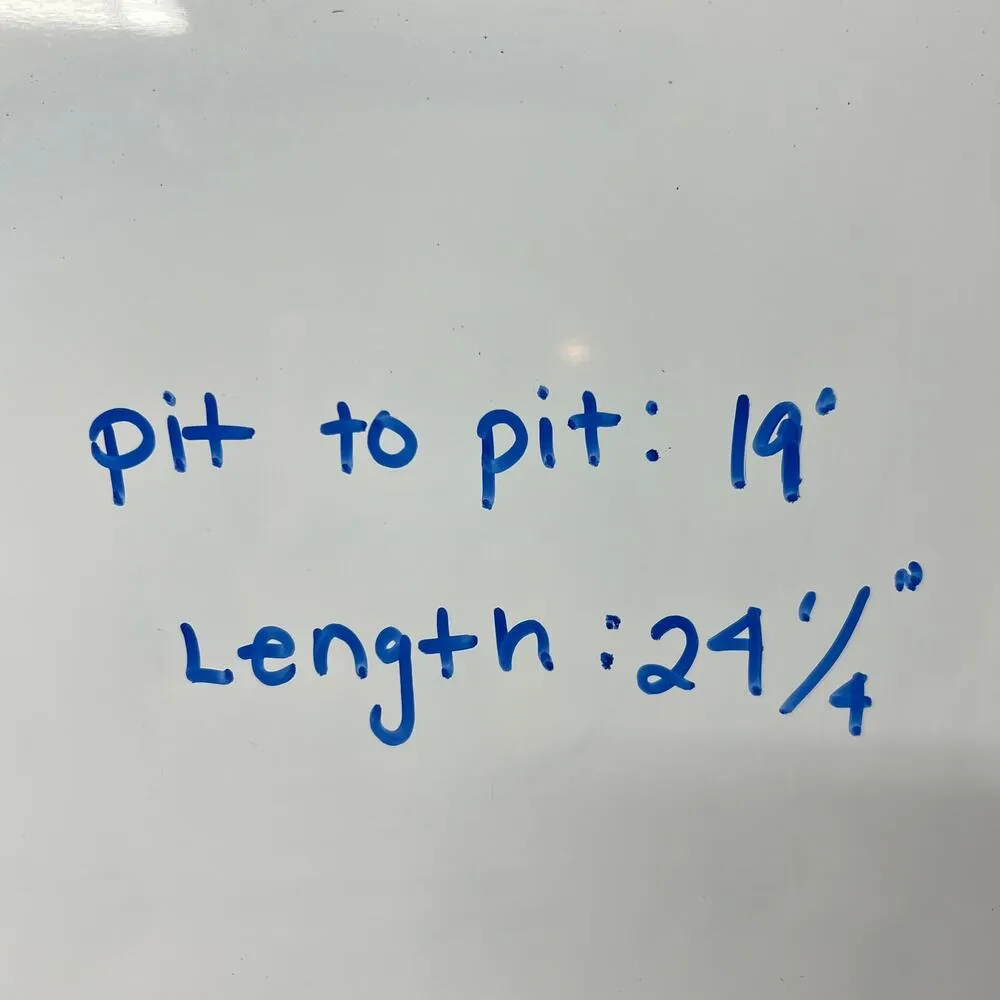 pit to pit: 19"
Length: 24 1/4"